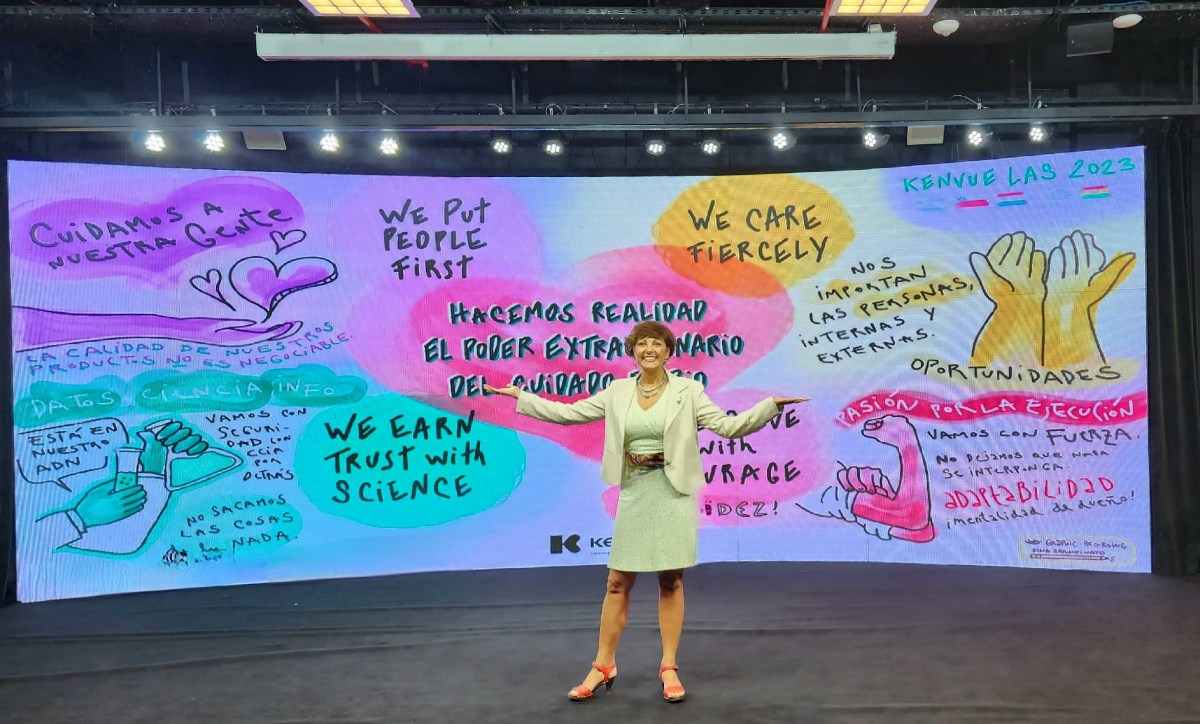 CUIDAMOS A
NUESTRA GENTE
LA CALIDAD DE NUESTROS
PRODUCTOS NO ES NEGOCIABLE.
WE PUT
PEOPLE
FIRST
HACEMOS REALIDAD
EL PODER EXTRA NARIO
DEL CUIDADO
WE CARE
FIERCELY
KENVUE LAS 2023
NOS
IMPORTAN
LAS PERSONAS,
INTERNAS Y
EXTERNAS.
OPORTUNIDADES
DATOS, CIENCIA, INFO
ESTÁ EN
NUESTRO
ADN
VAMOS CON
SEGURI-
DAD CON
CCIA
POR
DETRÁS
NO SACAMOS
LAS COSAS
NADA.
WE EARN
TRUST with
SCIENCE
VE
with
URAGE
IDEZ!
K KE
PASIÓN POR LA EJECUCIÓN
VAMOS CON FUERZA.
NO DEJAMOS QUE NADA
SE INTERPONGA.
ADAPTABILIDAD
¡mentalidad de dueño!
GRAPHIC RECORDING